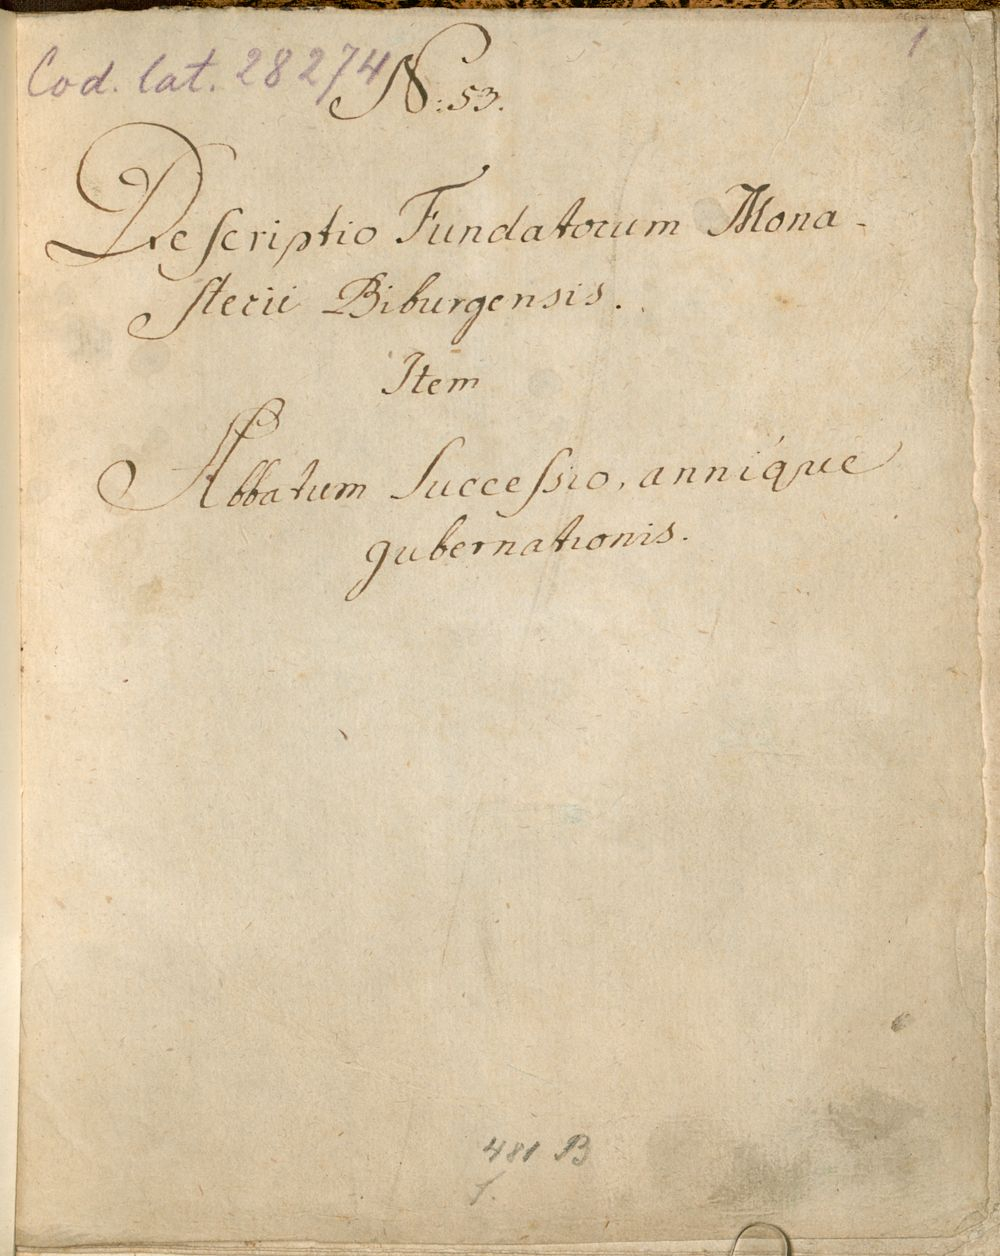 Cod. lat. 28274
1
N: 53.
Descriptio Fundatorum Mona-
sterii Biburgensis.
Item
Abbatum Successio, anniq́ue
gubernationis.
481 B